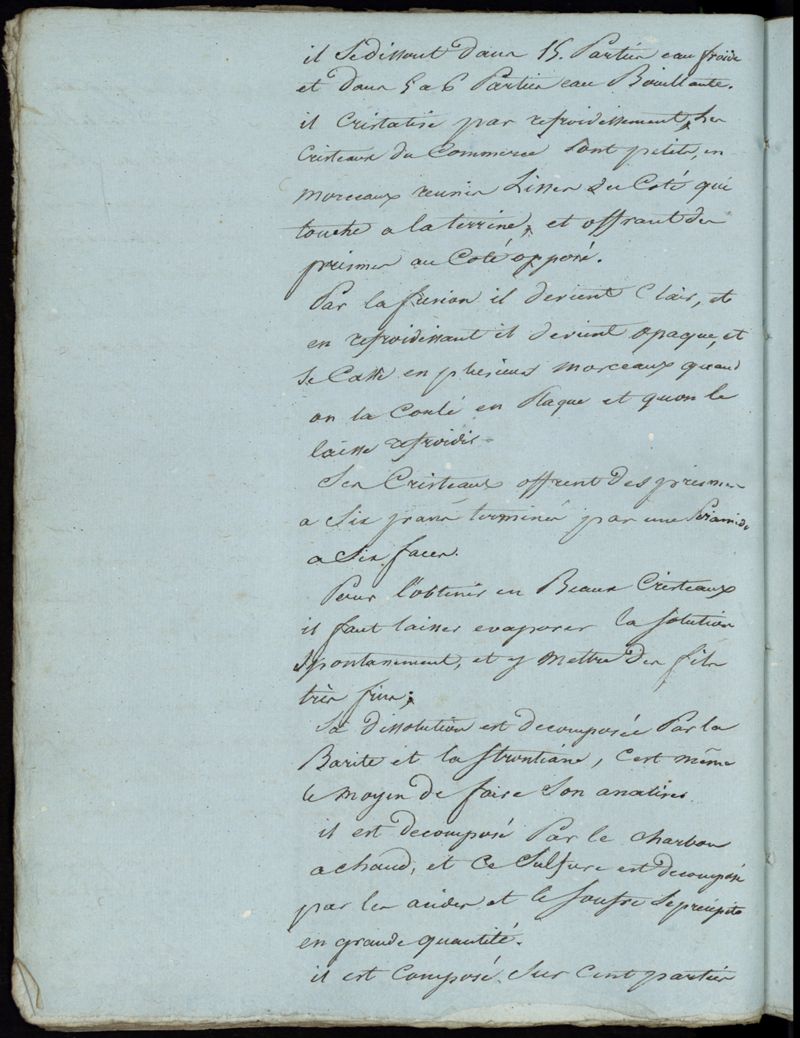 il Se dissout dans 15. Parties eau froide
et dans 5 a 6 Parties eau Bouillante.
il Cristalise par refroidissement, Les
Cristeaux du Commerce Sont petits, en
morceaux reunis Lisses du Coté qui
touche a la terrine, et offrant des
prismes au Coté opposé.
Par la fusion il devient Clair, et
en refroidissant il devient opaque, et
Se Casse en plusieurs morceaux quand
on la Coulé en Plaque et quon le
laisse refroidir
Ses Cristeaux offrent des prismes
a Six pans terminés par une Piramide
a Six faces.
Pour l'obtenir en Beaux Cristeaux
il faut laisser evaporer la Solution
Spontanement, et y mettre des fils
très fins;
Sa dissolution est decomposée Par la
Barite et la Strontiane, C'est même
le moyen de faire Son analise
il est decomposé Par le charbon
a chaud, et Ce Sulfure est decomposé
par les acides et le Soufre Se précipite
en grande quantité.
il est Composé Sur Cent parties